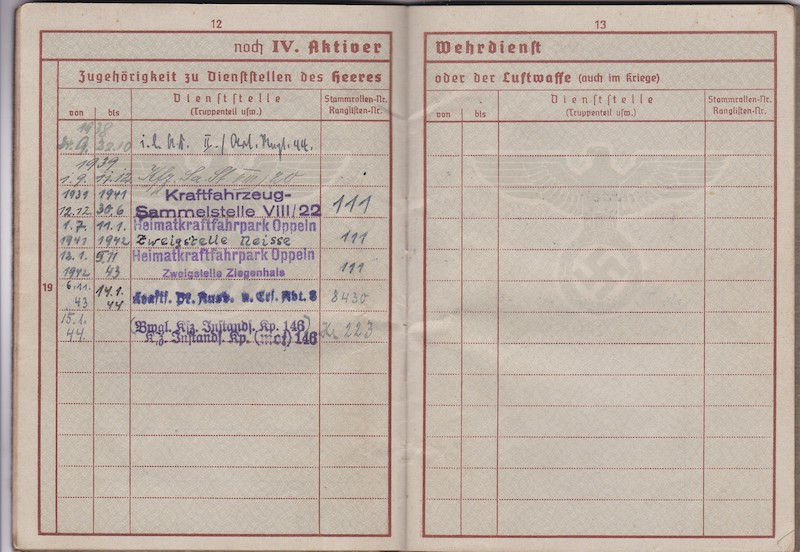 12
noch IV. Aktiver
Zugehörigkeit zu Dienststellen des Heeres
von bis
Dienststelle
(Truppenteil usw.)
Stammrollen-Nr.
Ranglisten-Nr.
1938
28.10. II./Art. Regt. 44.
1939
1.9. 11.12 Kfz. Sa. St. VIII/20
1939 1941 Kraftfahrzeug-
12.12 30.6 Sammelstelle VIII/22 111
1.7. 11.1. Heimatkraftfahrpark Oppeln
1941 1942 Zweigstelle Neisse 111
12.1. 5.11 Heimatkraftfahrpark Oppeln
1942 43 Zweigstelle Ziegenhals 111
19
6.11. 14.1. Kraftf. Pk. Ausb. u. Ers. Abt. 8 8430
43 44
15.1. (Bwgl. Kfz. Instands. Kp. 146) 223
44. Kfz. Instands. Kp. (mot) 146
13
Wehrdienst
oder der Luftwaffe (auch im Kriege)
von bis
Dienststelle
(Truppenteil usw.)
Stammrollen-Nr.
Ranglisten-Nr.